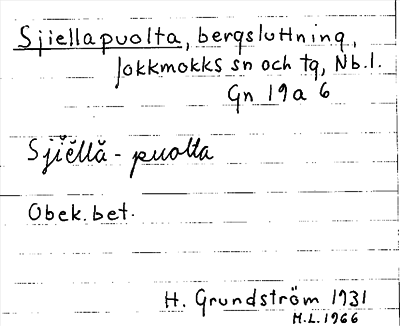 Sjiellapuolta, bergsluttning,
Jokkmokks sn och tg, Nb.l.
Gn 19a 6
Sjĭĕllă - puolta
Obek. bet.
H. Grundström 1931
M.L. 1966